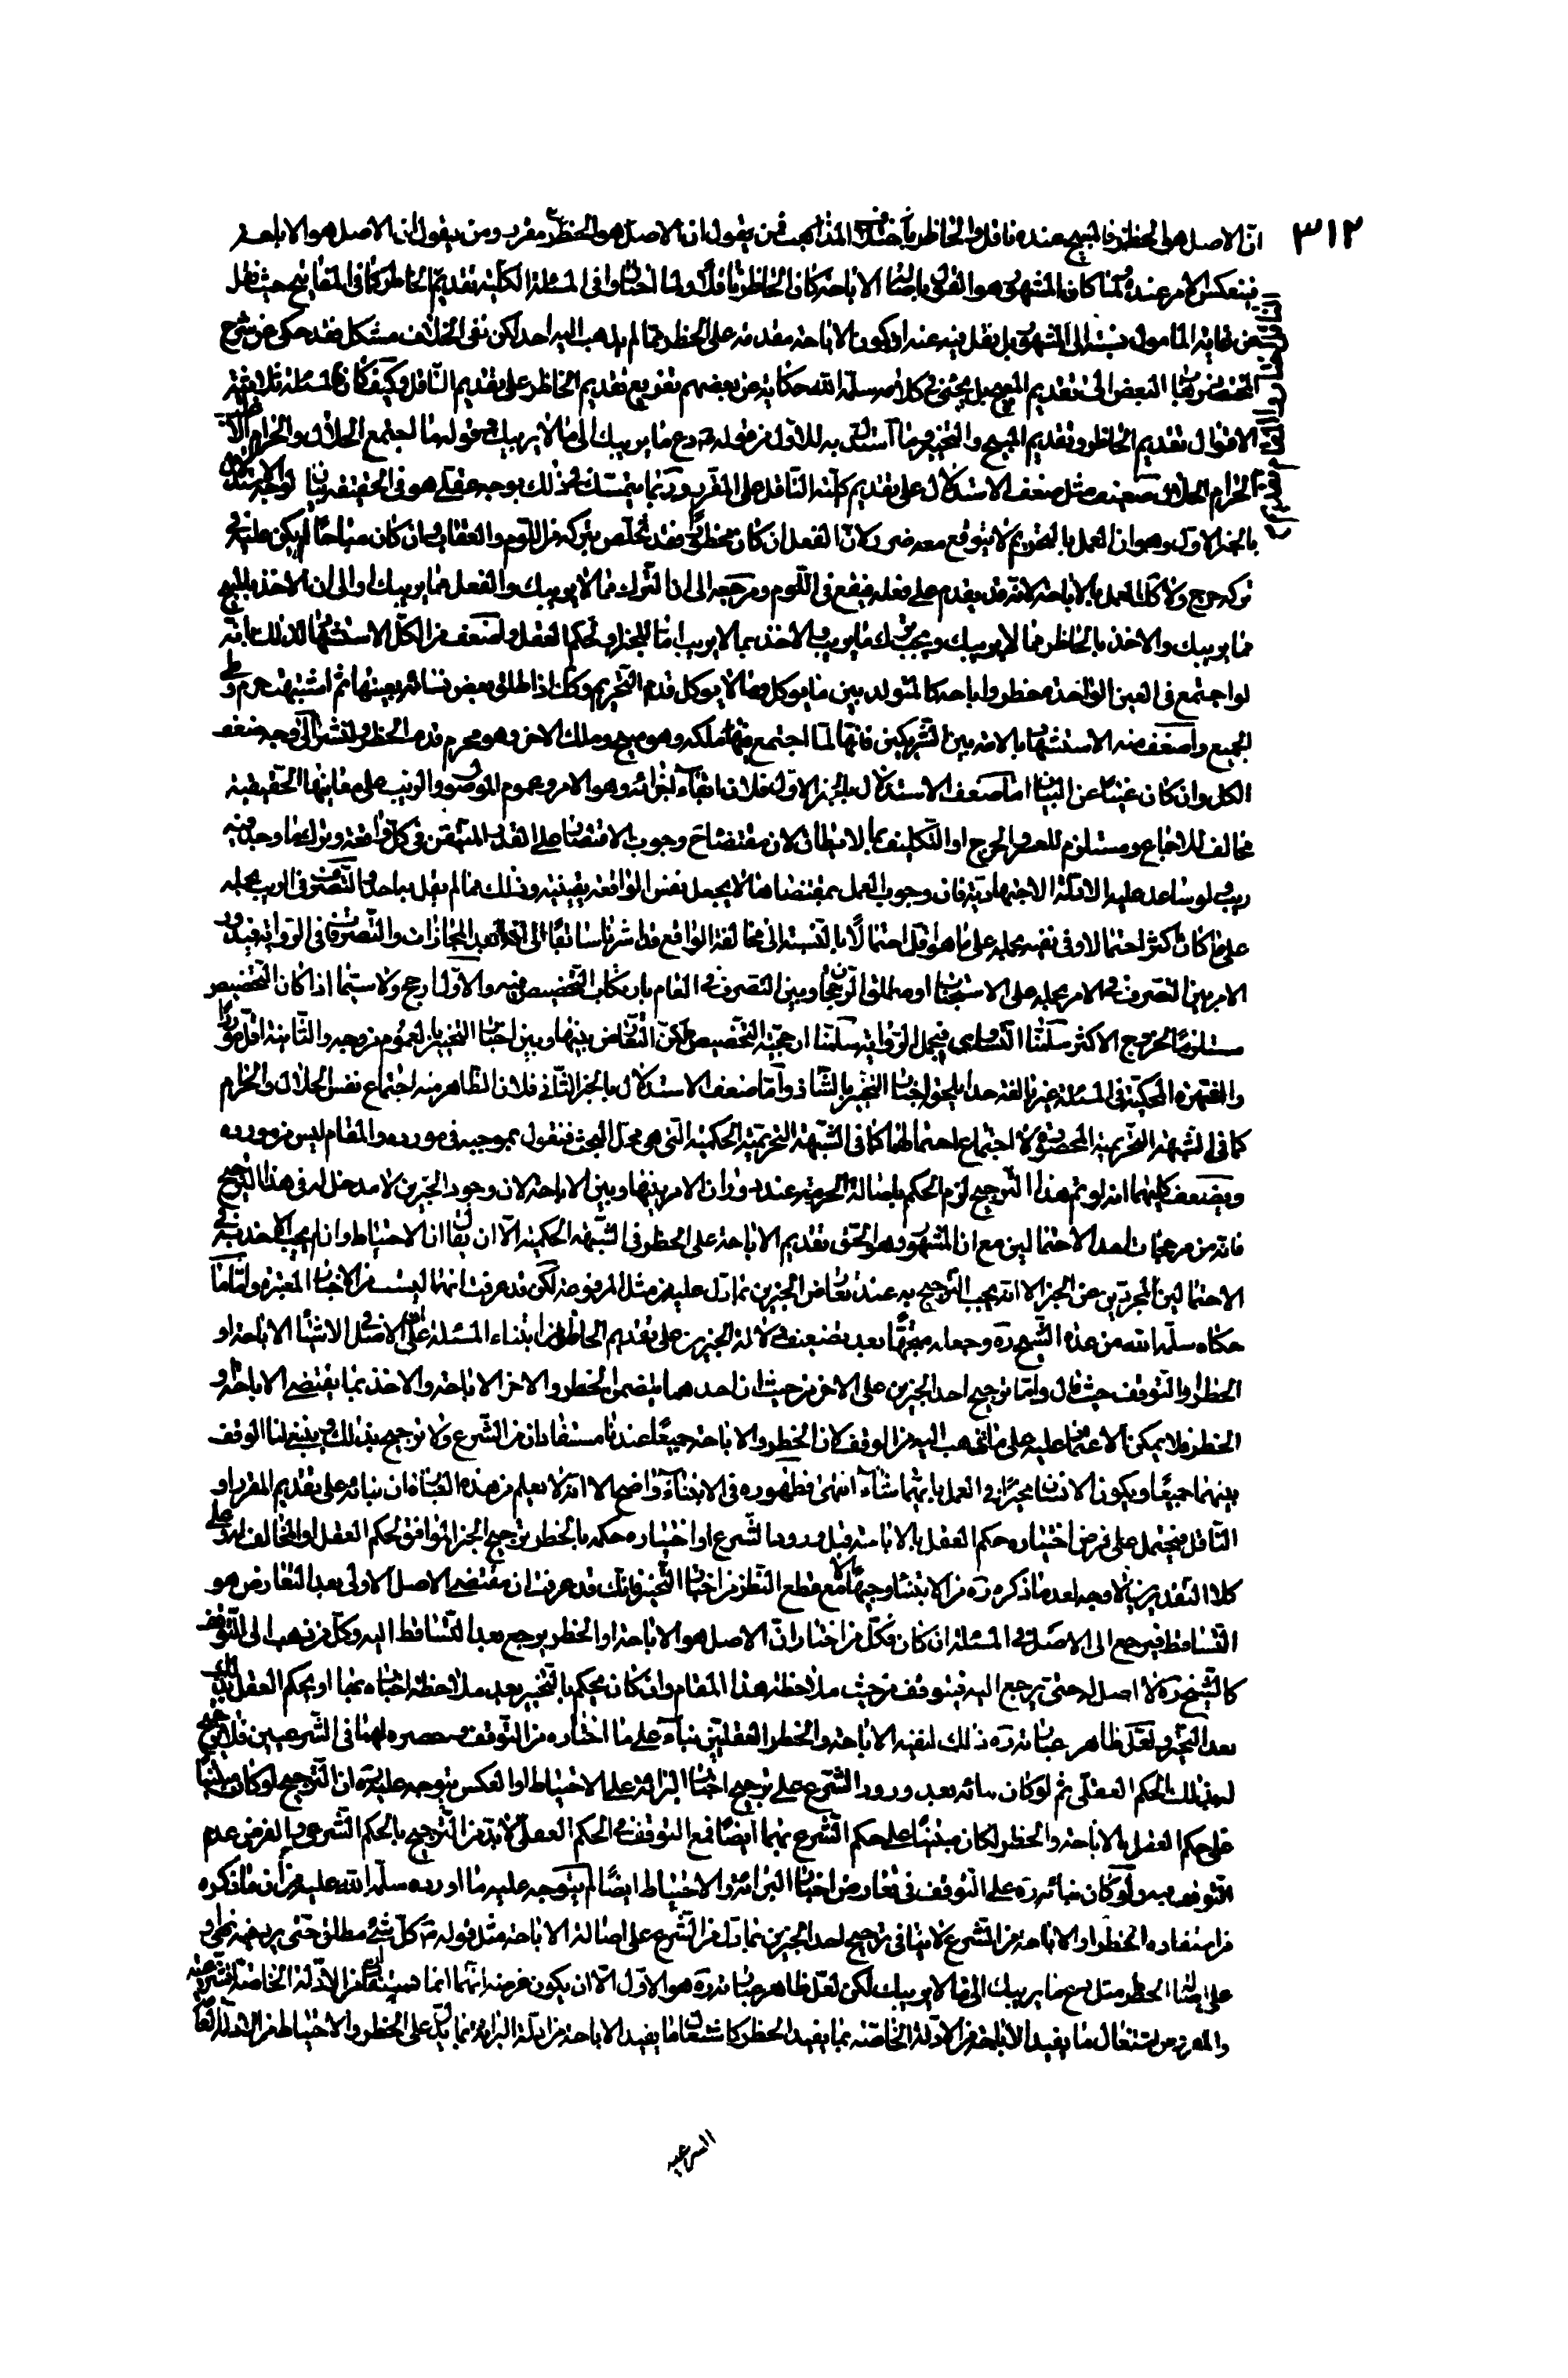 ٣١٢
انّ الاصل هو الحظر فالمبيح عنده ناقل والحاظر باختلاف المذاهب فمن يقول ان الاصل هو الحظر مقرر ومن يقول ان الاصل هو الاباحة
ينعكس الامر عنده لما كان المشهور هو القول باصالة الاباحة كان الحاظر ناقلا ولذا اختاروا فى المسئلة الكلية تقديم الحاظر كما فى المفاتيح حيث نقل
عن غاية المامول نسبته الى المشهور بل نقل فيه عنه ان كون الاباحة مقدمة على الحظر مما لم يذهب اليه احد لكن نفى الخلاف مشكل فقد حكى عن شرح
المختصر ذهاب البعض الى تقديم المبيح بل يجئ فى كلامه سلمه الله حكاية عن بعضهم تفريع تقديم الحاظر على تقديم الناقل وكيف كان فالمسئلة ثلاثية
الاقوال تقديم الحاظر وتقديم المبيح والتخيير وما استدل به للاول من قوله ع دع ما يريبك الى ما لا يريبك وقوله ما اجتمع الحلال والحرام الا غلب
الحرام الحلال ضعيف مثل ضعف الاستدلال على تقديم كلية الناقل على المقرر وربما يتمسك لذلك بوجه عقلى هو فى الحقيقة بيان لوجه الاستدلال
بالخبر الاول وهو ان العمل بالتحريم لا يتوقع معه ضرر لان الفعل ان كان محظورا فقد تخلص بتركه من اللوم والعقاب وان كان مباحا لم يكن عليه فى
تركه حرج ولا كذلك العمل بالاباحة لانه قد يقدم على فعله فيقع فى اللوم ومرجعه الى ان الترك مما لا يريبك والفعل مما يريبك او الى ان الاخذ بالمبيح
مما يريبك والاخذ بالحاظر مما لا يريبك ويجب ترك ما يريب والاخذ بما لا يريب اما للخبر او لحكم العقل واضعف من الكل الاستشهاد لذلك بانه
لو اجتمع فى العين الواحدة حظر واباحة كالمتولد بين ما يوكل وما لا يوكل قدم التحريم وكذا اذا طلق بعض نسائه بعينها ثم اشتبهت حرم وطى
الجميع واضعف منه الاستشهاد بالامة بين الشريكين فانها لما اجتمع فيها ملكه وهو مبيح وملك الاخر وهو محرم قدم الحظر ولنشر الى وجه ضعف
الكل وان كان غنيا عن البيان اما ضعف الاستدلال بالخبر الاول فلان ابقاء لفظه وهو الامر وعموم الموصول والريب على معانيها الحقيقية
مخالف للاجماع ومستلزم للعسر والحرج او التكليف بما لا يطاق لان مقتضاه ح وجوب الاقتصار على القدر المتيقن فى كل واقعة وترك ما وجد فيه
ريب ولو ساعد عليه الادلة الاجتهادية فان وجوب العمل بمقتضاها لا يجعل نفس الواقعة يقينية وذلك مما لم يقل به احد والتصرف فى الريب بحمله
على ما كان اكثر احتمالا وفى نفيه بحمله على ما هو اقل احتمالا بالنسبة الى مخالفة الواقع قد اشرنا سابقا الى انه ابعد المجازات والتصرفات فى الرواية فيدور
الامر بين التصرف فى الامر بحمله على الاستحباب او مطلق الرجحان وبين التصرف فى العام بارتكاب التخصيص فيه والاول ارجح ولا سيما اذا كان التخصيص
مستلزما لخروج الاكثر سلمنا التساوى فيجمل الرواية سلمنا ارجحية التخصيص لكن التعارض بينها وبين اخبار التخيير بالعموم من وجه والثانية اقل موردا
والشهرة المحكية فى المسئلة غير بالغة حدا يلحق اخبار التخيير بالشاذ واما ضعف الاستدلال بالخبر الثانى فلان الظاهر منه اجتماع نفس الحلال والحرام
كما فى الشبهة التحريمية المحصورة لا اجتماع احتمالهما كما فى الشبهة التحريمية الحكمية التى هى محل البحث فنقول بموجبه فى مورده والمقام ليس من مورده
ويضعف كليهما انه لو تم هذا الترجيح لزم الحكم باصالة الحرمة عند دوران الامر بينها وبين الاباحة لان وجود الخبرين لا مدخل له فى هذا الترجيح
فانه من مرجحات احد الاحتمالين مع ان المشهور وهو الحق تقديم الاباحة على الحظر فى الشبهة الحكمية الا ان يقال ان الاحتياط وان لم يجب الاخذ به فى
الاحتمالين المجردين عن الخبر الا انه يجب الترجيح به عند تعارض الخبرين بما دل عليه من مثل المرفوعة لكن قد عرفت انهما ليست من الاخبار المعتبرة واما ما
حكاه سلمه الله عن عدة الشيخ ره وجعله متجها بعد تضعيف دلالة الخبرين على تقديم الحاظر من ابتناء المسئلة على ان الاصل فى الاشياء الاباحة او
الحظر او التوقف حيث قال واما ترجيح احد الخبرين على الاخر من حيث ان احدهما يتضمن الحظر والاخر الاباحة والاخذ بما يقتضى الاباحة او
الحظر فلا يمكن الاعتماد عليه على ما نذهب اليه من الوقف لان الحظر والاباحة جميعا عندنا مستفادان من الشرع ولا ترجيح بذلك وينبغى لنا الوقف
بينهما جميعا ويكون الانسان مخيرا فى العمل بايهما شاء انتهى فظهوره فى الابتناء واضح الا انه لا يعلم من هذه العبارة ان بنائه على تقديم المقرر او
الناقل فيحتمل على فرض اختياره حكم العقل بالاباحة قبل ورود الشرع او اختياره حكمه بالحظر ترجيح الخبر الموافق لحكم العقل او المخالف له وعلى
كلا التقديرين لا وجه لعد ما ذكره ره من الابتناء وجيها مع قطع النظر من اخبار التخيير فانك قد عرفت ان مقتضى الاصل الاولى بعد التعارض هو
التساقط فيرجع الى الاصل فى المسئلة ان كان فكل من اختار ان الاصل هو الاباحة او الحظر يرجع بعد التساقط اليه وكل من ذهب الى التوقف
كالشيخ ره لا اصل له حتى يرجع اليه فيتوقف من حيث ملاحظة هذا المقام وان كان يحكم بالتخيير بعد ملاحظة اخباره بها او يحكم العقل بذلك
بعد التحير ولعل ظاهر عبارته ره ذلك لنفيه الاباحة والحظر العقليين بناء على ما اختاره من التوقف وحصره لهما فى الشرعيين فلا ترجيح
بذلك الحكم العقلى ثم لو كان بنائه بعد ورود الشرع على ترجيح اخبار البرائة على الاحتياط او العكس يتوجه عليه ره ان الترجيح لو كان مبنيا
على حكم العقل بالاباحة والحظر لكان مبتنيا على حكم الشرع بهما ايضا فمع التوقف فى الحكم العقلى لا بد من الترجيح بالحكم الشرعى والفرض عدم
التوقف فيه ولو كان بنائه ره على التوقف فى تعارض اخبار البرائة والاحتياط ايضا لم يتوجه عليه ما اورده سلمه الله عليه من ان ما ذكره
من استفادة الحظر او الاباحة من الشرع لا ينافى ترجيح احد الخبرين بما دل من الشرع على اصالة الاباحة مثل قوله ع كل شئ مطلق حتى يرد فيه نهى او
على اصالة الحظر مثل دع ما يريبك الى ما لا يريبك لكن لعل ظاهر عبارته ره هو الاول الا ان يكون غرضه انهما انما يستفادان من الادلة الخاصة
والغرض استقلال ما يفيد الاباحة من الادلة الخاصة بما يفيد الحظر كاستقلال ما يفيد الاباحة من ادلة البرائة بما يدل على الحظر والاحتياط من الادلة
الشرعية